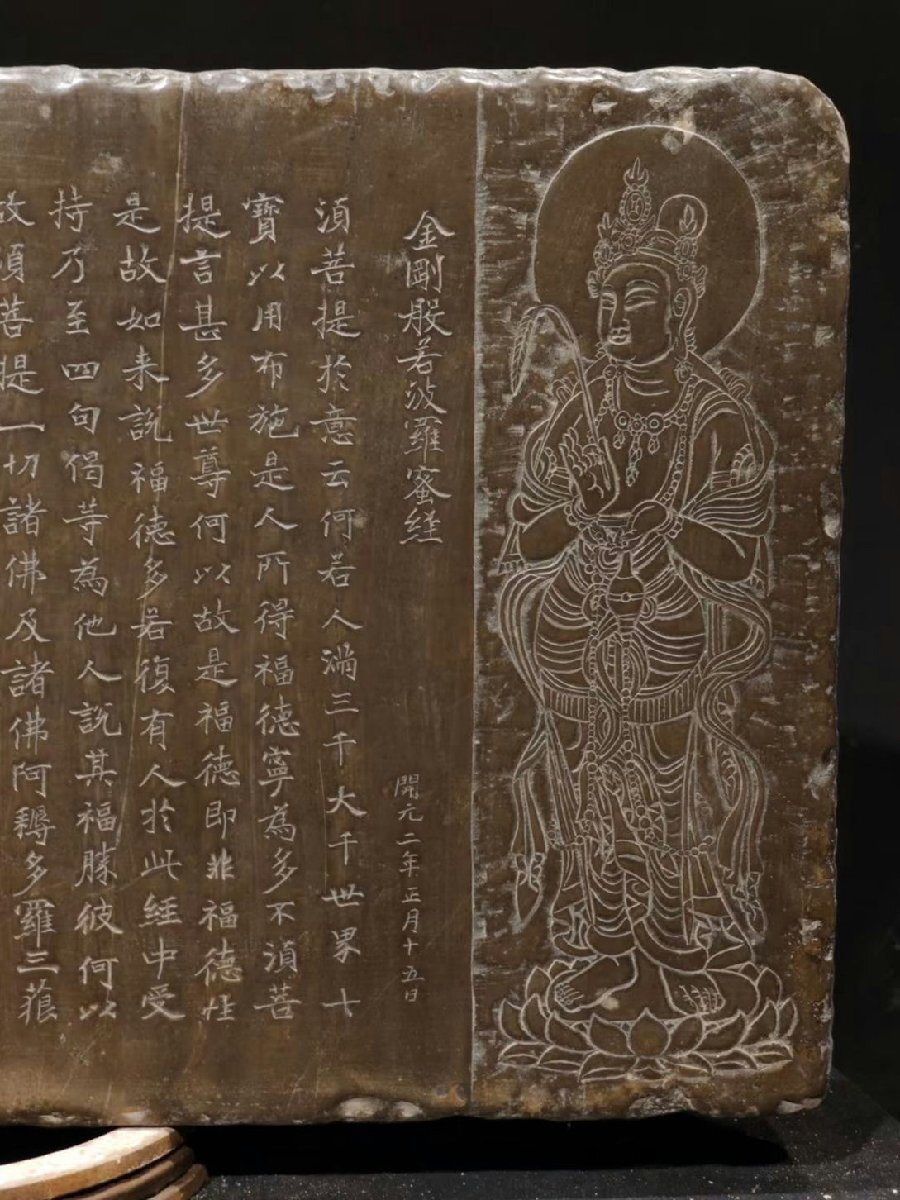 金剛般若波羅蜜経
開元二年正月十五日
湏菩提於意云何若人滿三千大千世界七
寳以用布施是人所得福德寧為多不湏菩
提言甚多世尊何以故是福德即非福德性
是故如来說福德多若復有人於此經中受
持乃至四句偈等為他人說其福勝彼何以
故湏菩提一切諸佛及諸佛阿耨多羅三藐